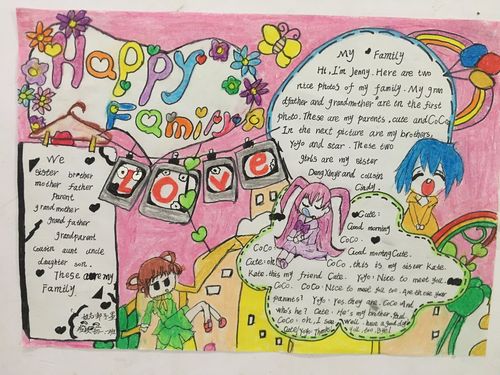 Happy
Family
Love
We
sister brother
mother father
Parent
grandmother
grandfather
grandparent
cousin aunt uncle
daughter son.
These are my
Family.
My Family
Hi, I'm Jenny. Here are two
nice photos of my family. My gran
dfather and grandmother are in the first
photo. These are my parents, cate and CoCo
In the next picture are my brothers,
YoYo and star. These two
girls are my sister
and cousin
Cindy.
Cate:
Good morning
CoCo.
CoCo: Good morning Cate.
Cate: oh! CoCo, this is my sister Kate.
Kate. this my friend Cate. YoYo: Nice to meet you.
CoCo: CoCo: Nice to meet you too. Are those your
parents? YoYo: Yes, they are. CoCo And
who's he? Cate: He's my brother Paul.
CoCo: oh, I see. Well, have a good day
Cate YoYo: Thanks! You, too. Bye!